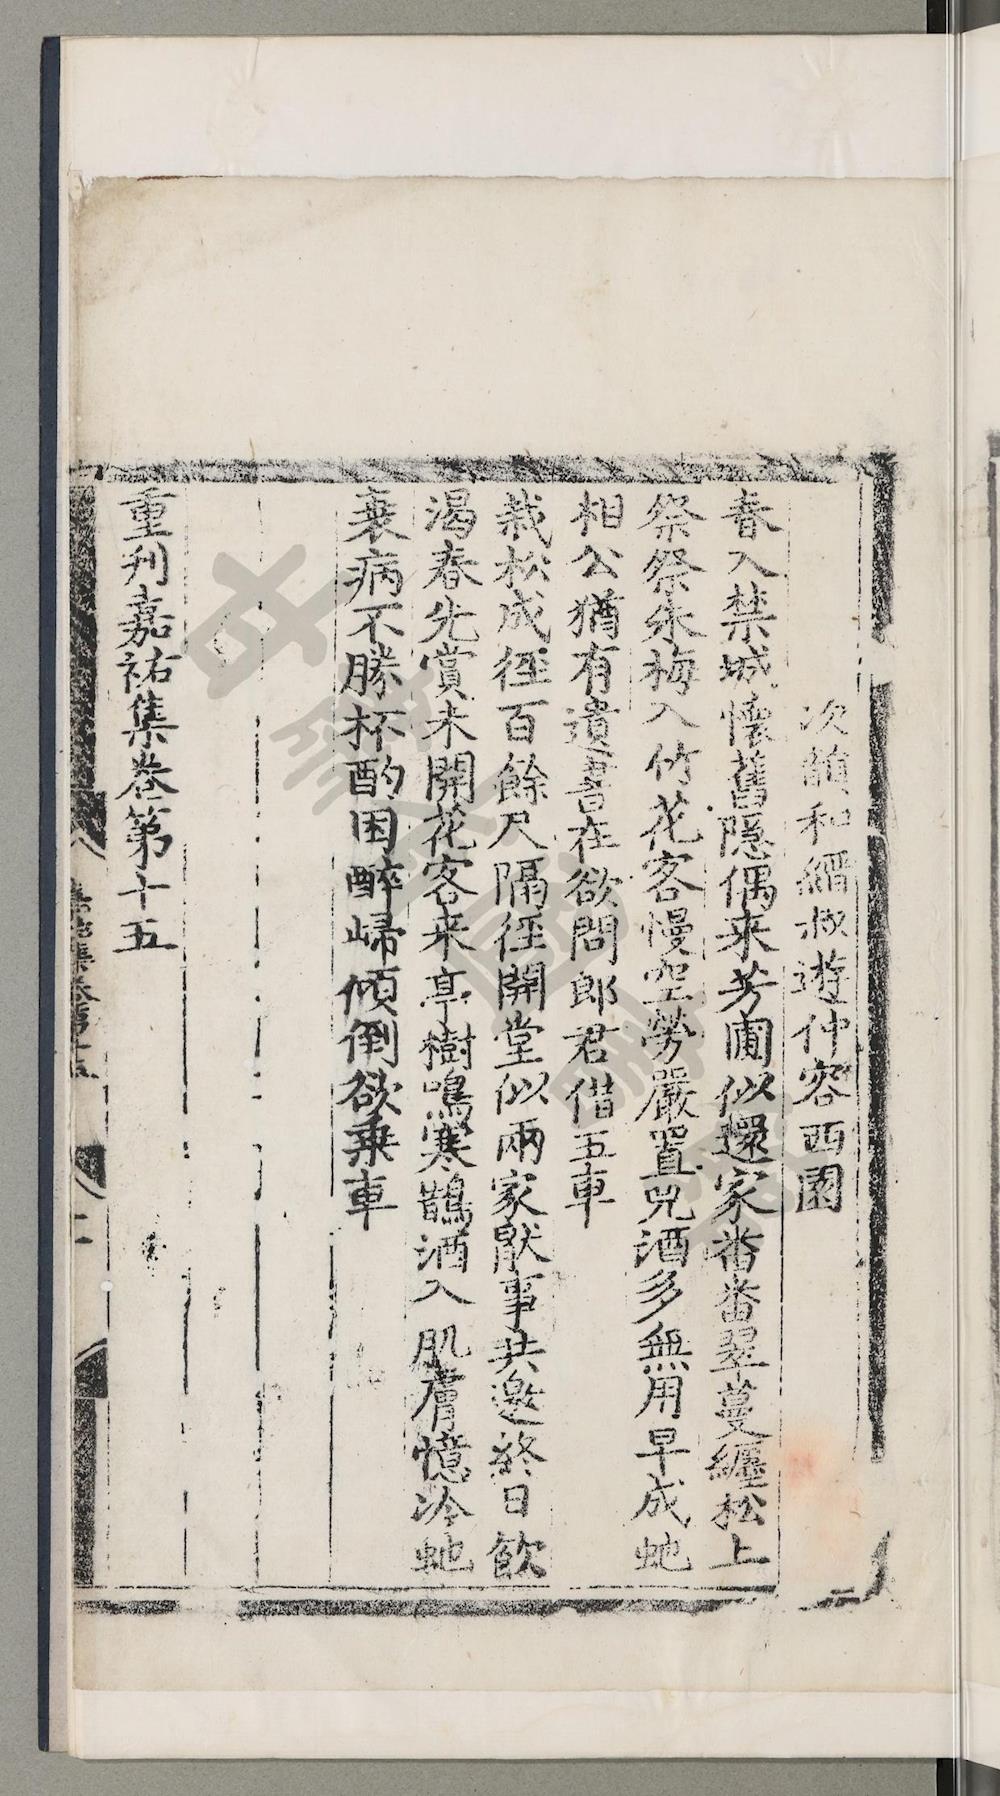 次韻和縉叔遊仲容西園
春入禁城懷舊隐偶来芳圃似還家畨畨翠蔓纒松上
粲粲朱梅入竹花客慢空勞嚴置兕酒多無用早成虵
相公猶有遺書在欲問郎君借五車
栽松成徑百餘尺隔徑開堂似兩家猒事共邀終日飲
渴春先賞未開花客来亭樹鳴寒鵲酒入肌膚憶冷虵
衰病不勝杯酌困醉歸傾倒欲乗車
重刋嘉祐集卷第十五